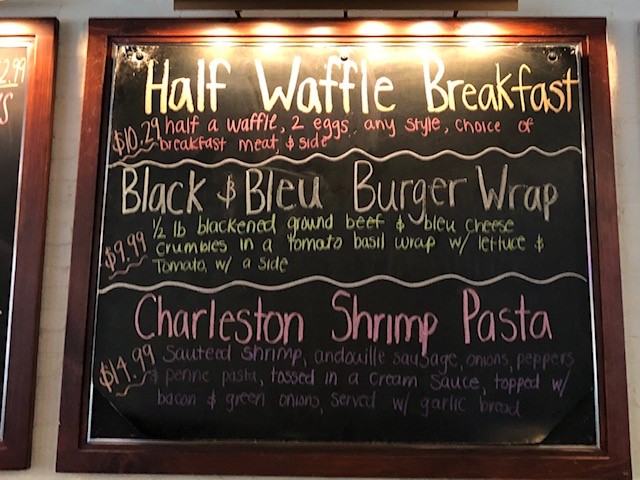 2.99
s
Half Waffle Breakfast
$10.29 half a waffle, 2 eggs any style, choice of
breakfast meat, & side
Black & Bleu Burger Wrap
1/2 lb blackened ground beef & bleu cheese
$9.99 crumbles in a tomato basil wrap w/ lettuce &
Tomato, w/ a side
Charleston Shrimp Pasta
$14.99 Sauteed shrimp, andouille sausage, onions, peppers
& penne pasta, tossed in a cream sauce, topped w/
bacon & green onions, served w/ garlic bread